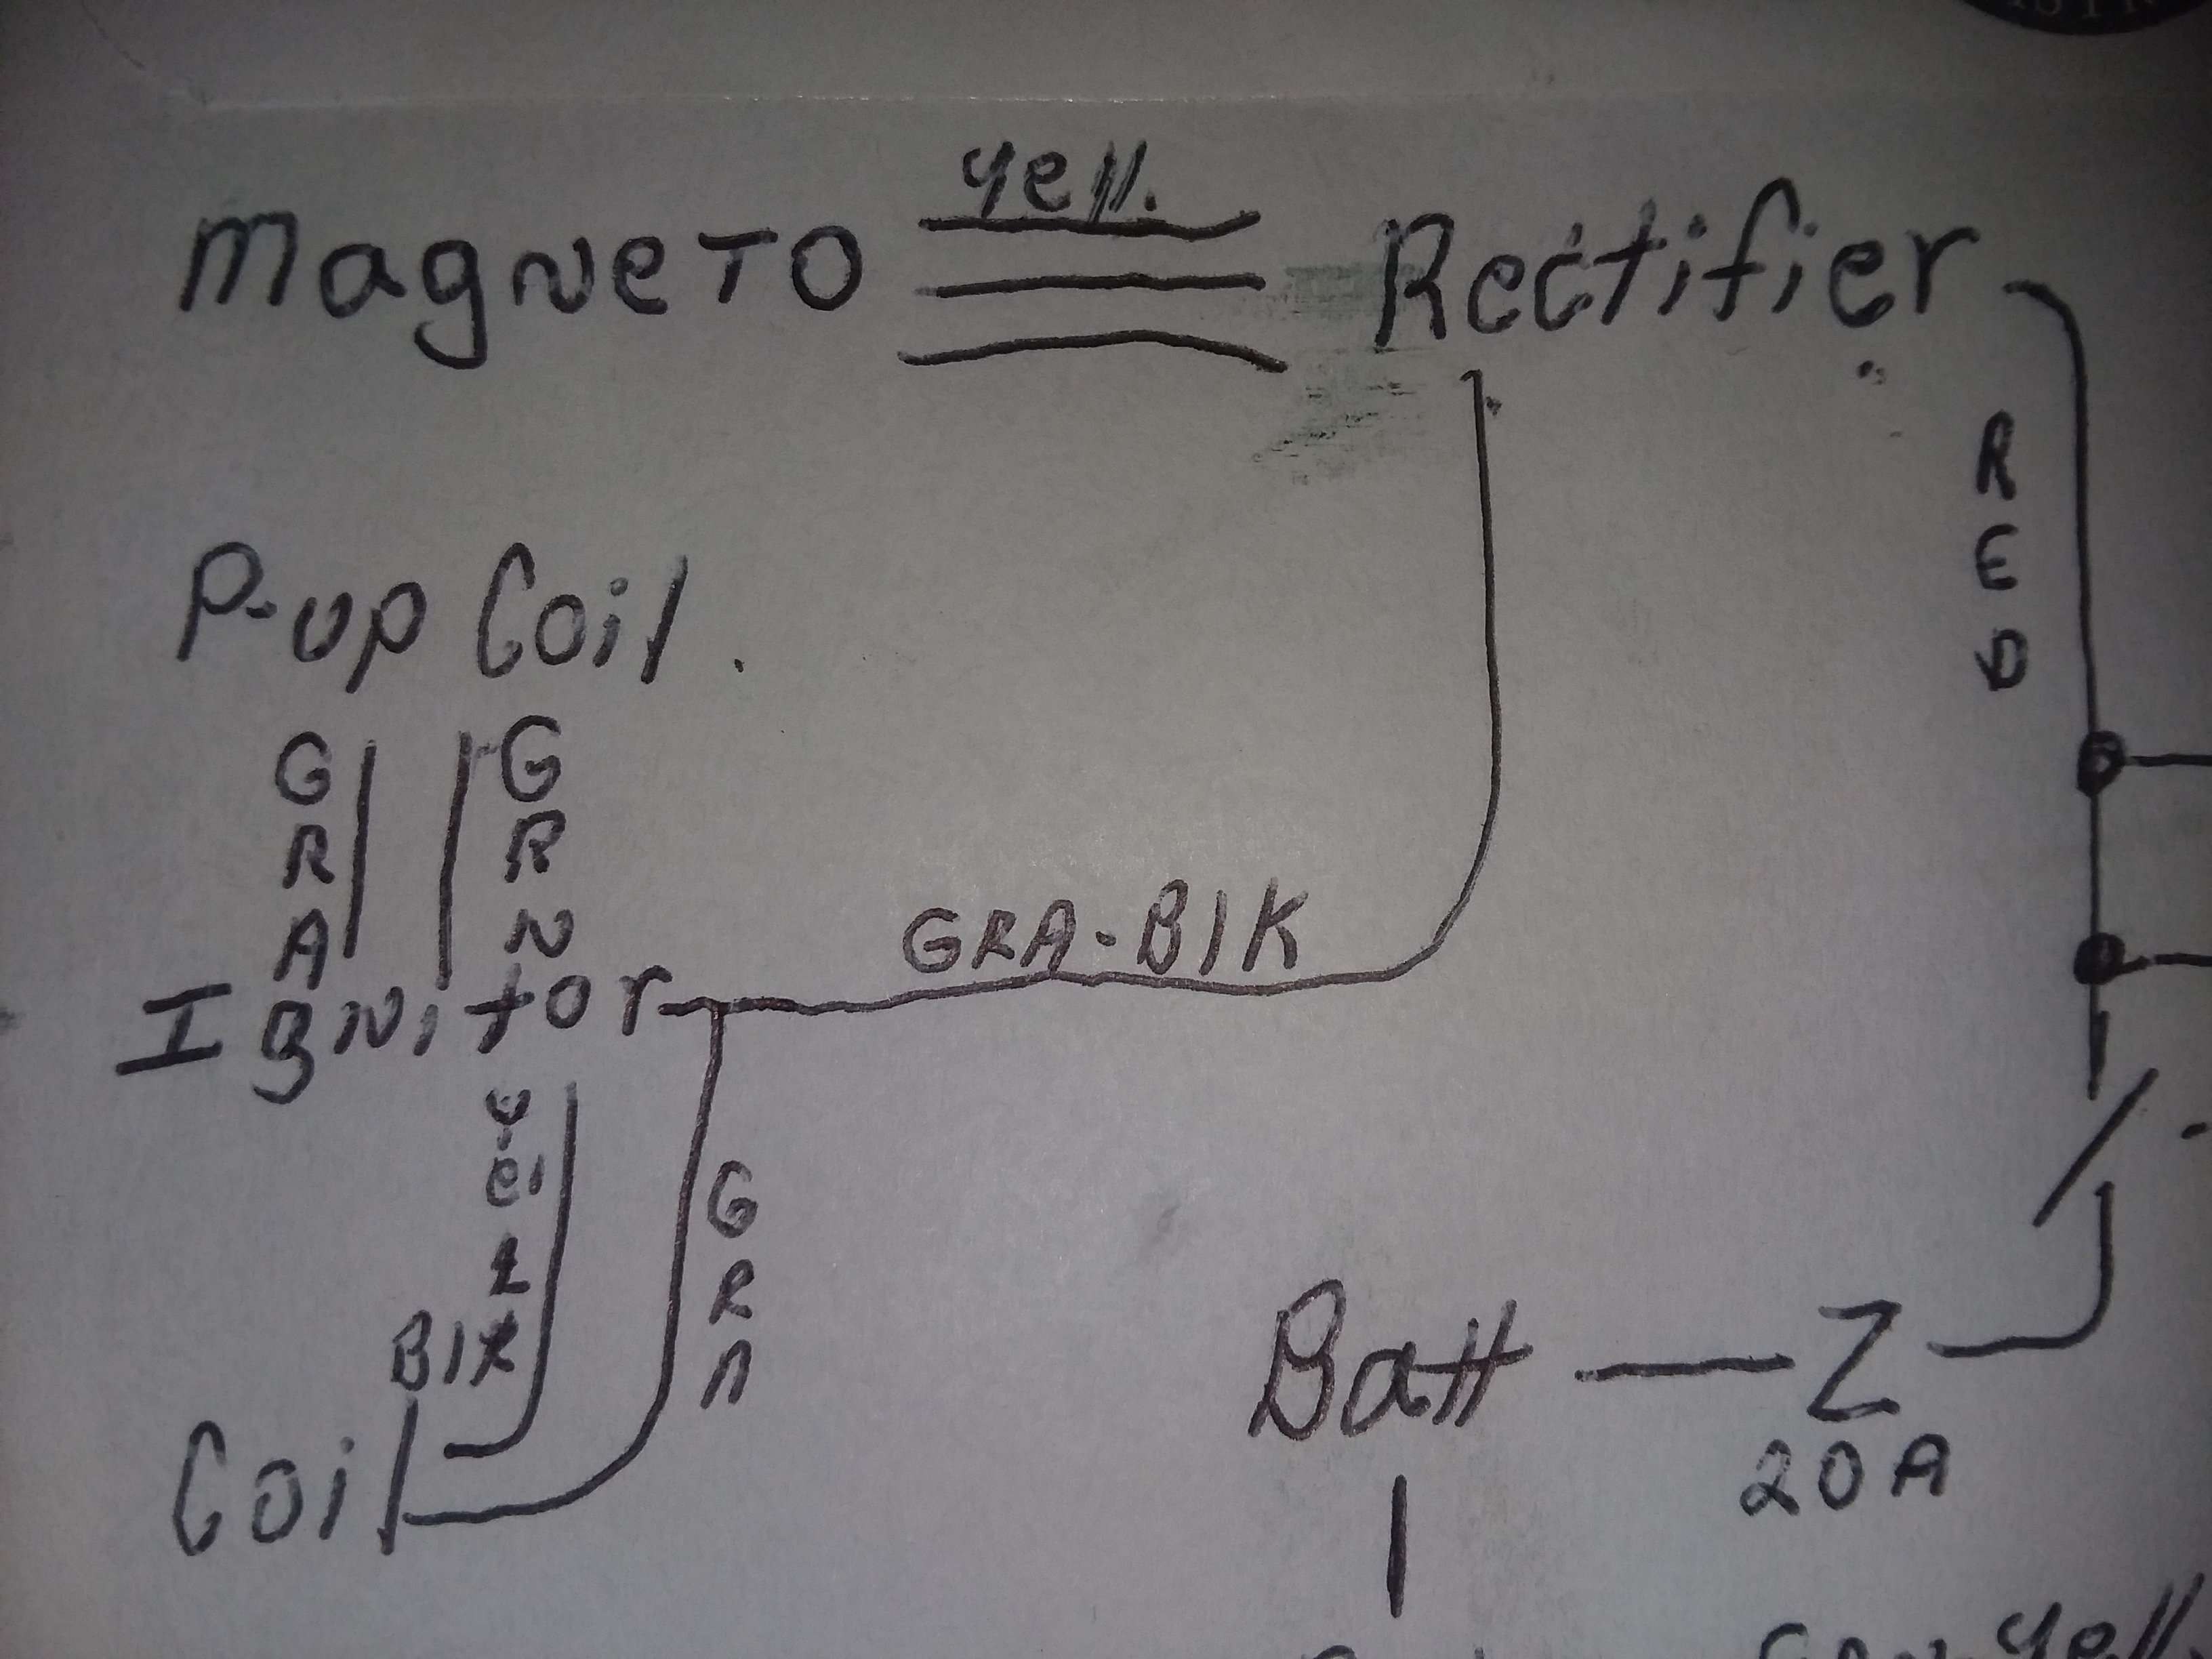 yell.
MagneTO
Rectifier
RED
P-up Coil.
GRA
GRN
Ignitor
GRA-BlK
GRn
Blk
Coil
Batt
Z
20A
yell.